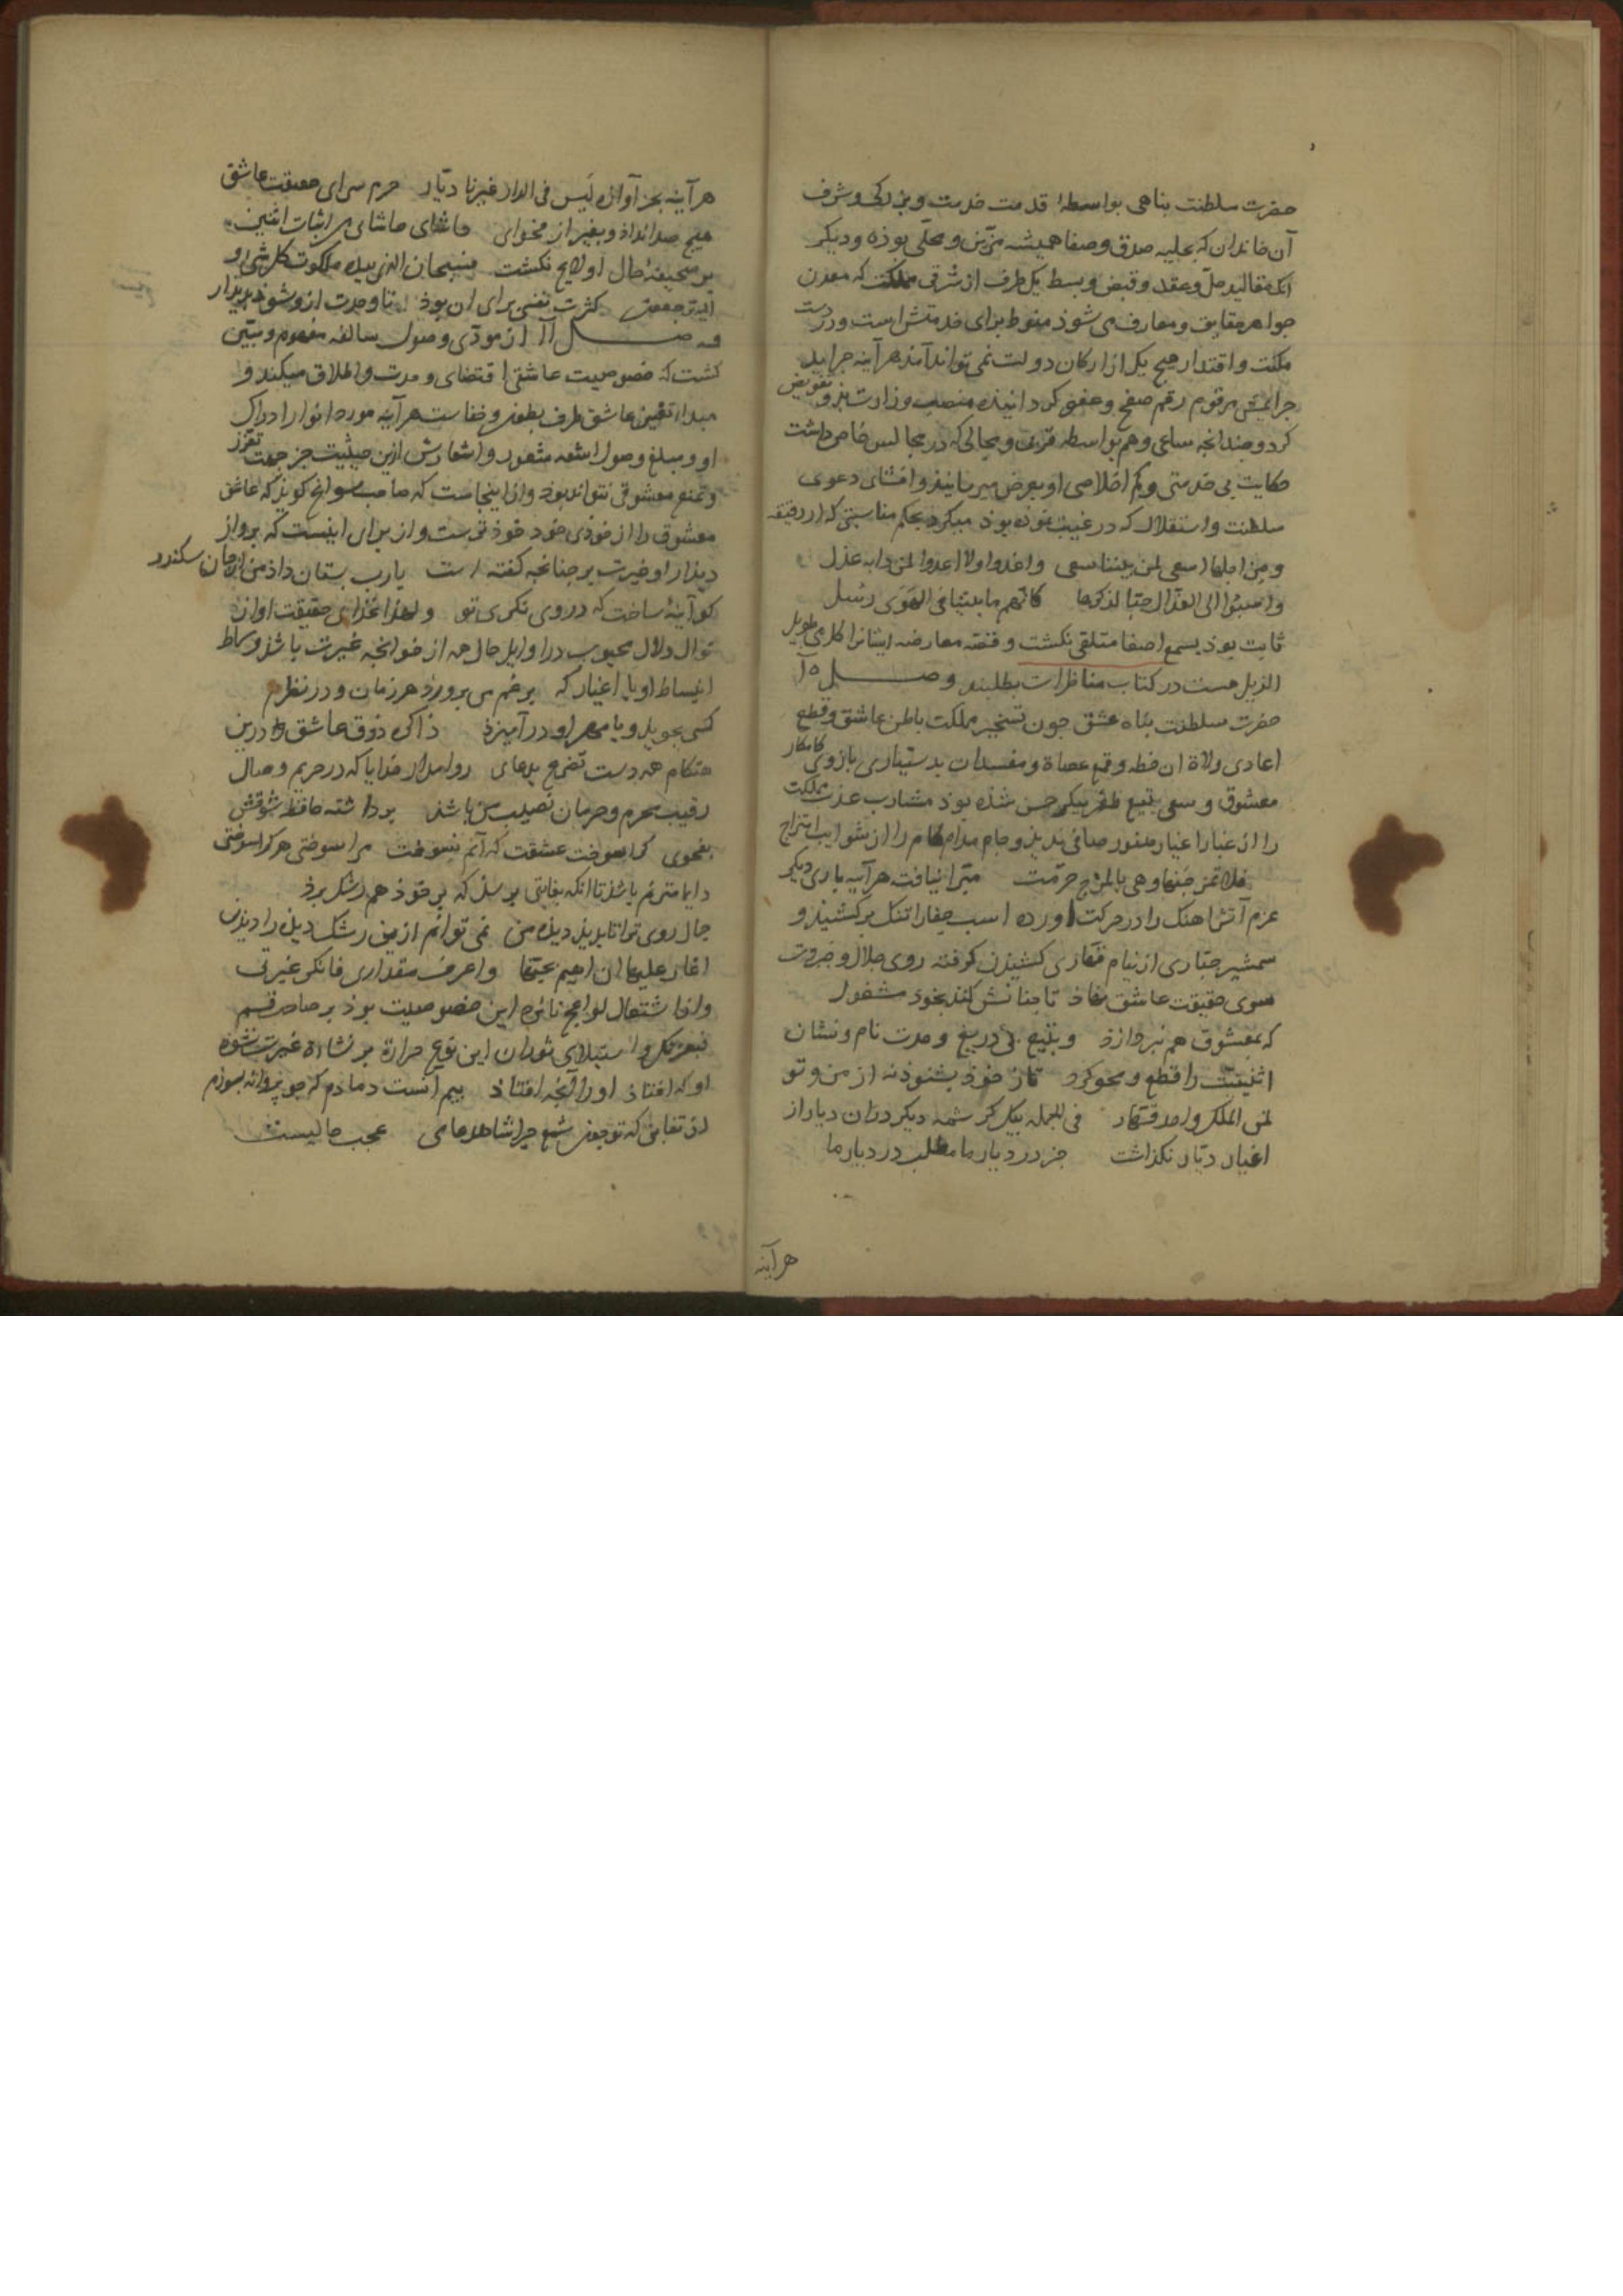 حضرت سلطنت بناهی بواسطهٔ قدمت خدمت و بزرکی و شرف
آن خاندان که بحلیه صدق و صفا همیشه مزین و محلی بوذه و دیکر
آنک مقالید حل و عقد و قبض و بسط یک طرف از شرقی مملکت که معدن
جواهر حقایق و معارف می شوذ منوط برای خدمتش است و در دست
مکنت و اقتدار هیچ یک از ارکان دولت نمی تواند آمذ هرآینه جراید
جرایمش مرقوم رقم صفح و عفو کردانیذه منصب وزارت بذو تفویض
کرد و جندانجه ساعی وهم بواسطه قربت و مجالی که در مجالس خاص داشت
حکایت بی خدمتی و کم اخلاصی او بعرض میرسانیذ و افشای دعوی
سلطنت و استقلال که در غیبت نموده بوذ میکرد بحکم مناسبتی که از رقیقه
ومن اجلها اسعی لمن بیننا سعی واغدوا ولا اعدوا لمن دابه عذل
کانهم ما بیننا فی الهوی رسل
ثابت بوذ بسمع اصغا متلقی نکشت و قصه معارضه ایشانرا کلامی طویل
الذیل هست در کتاب مناظرات بطلبند وصل ۱۵
حضرت سلطنت بناه عشق جون تسخیر مملکت باطن عاشق و قطع
اعادی ولاة ان خطه و قمع عصاة و مفسدان بدستیاری بازوی کامکار
معشوق و سعی تیغ ظفر بیکر حسن شذه بوذ مشارب عذب مملکت
را از غبار اغیار هنوز صافی ندیذ و جام مدام کام را از شوایب امتزاج
فلا تمزجنها وهی بالمزج حرمت مبرا نیافت هرآینه باری دیکر
عزم آتش اهنک را در حرکت اورده اسب جفا را تنک برکشیذ و
شمشیر جباری از نیام قهاری کشیذن کرفته روی جلال و جبروت
سوی حقیقت عاشق نهاذ تا جنانش کند بخوذ مشغول
که بمعشوق هم نبردازذ و بتیغ بی دریغ وحدت نام و نشان
اثنینیت را قطع و محو کرد تا ز خوذ بشنوذ نه از من و تو
لمن الملک واحد قهار فی الجمله بیک کرشمه دیکر دران دیار از
اغیار دیار نکذاشت جز درد یار ما مطلب در دیار ما
هرآینه
هرآینه بجز آوازه لیس فی الدار غیرنا دیار حرم سرای حقیقت عاشق
هیچ صدا نداذ و بغیر از فحوای حاشای حاشای من اثبات اثنین
بر صحیفهٔ حال او لایح نکشت فسبحان الذی بیده ملکوت کل شی و
الیه ترجعون کثرت نفسی برای ان بوذ تا وحدت ازو شوذ بدیذار
وصل ۱۶ از مودی وصول سالفه مفهوم و مبین
کشت که خصوصیت عاشقی اقتضای وحدت و اطلاق میکند و
مبداء تعین عاشق طرف بطون و خفاست هرآینه مورد انوار ادراک
او و مبلغ وصول اشعه شعور و اشعارش ازین حیثیت جز جهت تعزز
و تمنع معشوقی نتواند بوذ و از اینجاست که صاحب سوانح کویذ که عاشق
معشوق را از خوذی خوذ خوذ ترست و از برای اینست که برو از
دیذار او غیرت بر جنانجه کفته است یارب بستان داذ من از جان سکندر
کو آینهٔ ساخت که در روی نکری تو
دلال محبوب در اوایل حال هر از خوانجه غیرت باشذ و بساط
انبساط او با اغیار که برغم می برورذ هر زمان و در نظرم
کسی بجویذ و با مهر او درآمیزذ ذاکی ذوق عاشق درین
هنکام همه دست تضرع بدعای روا مدار خدایا که در حریم وصال
رقیب محرم و حرمان نصیب من باشذ برداشته حافظ شوقش
بفحوی کرا بسوخت عشقت که آنم نسوخت مرا سوختی هرکرا سوختی
دایما مترنم باشذ تا انکه بغایتی برسذ که بر خوذ هم رشک برذ
جال روی ترا تا بدیذ دیذه من نمی توانم ازین رشک دیذه را دیذن
اغار علیها ان اهیم بحبها واعرف مقداری فانکر غیرتی
و اذا اشتعال لواعج نائره این خصوصیت بوذ بر
استیلای ثوران این نوع حرارة بر نشاءة غیرت
او که افتاذ او را آنجه افتاذ بیم آنست دمادم که جو بروانه بسوزم
از تغابن که تو جون شمع جرا شاهد مای عجب حالیست